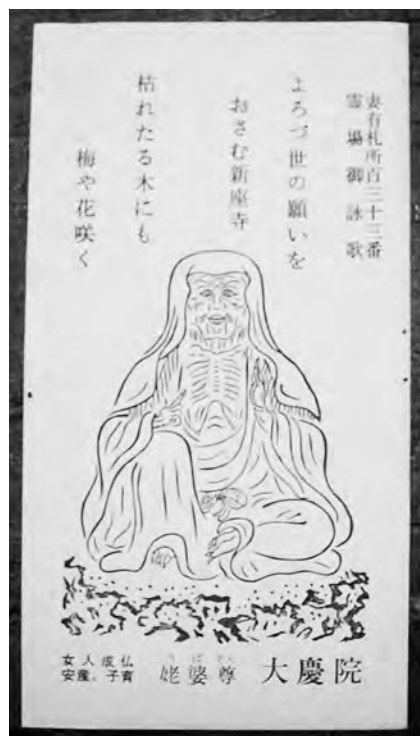 妻有札所百三十三番
霊場御詠歌
よろづ世の願いを
おさむ新座寺
枯れたる木にも
梅や花咲く
大慶院
姥婆尊
女人成仏
安産。子育